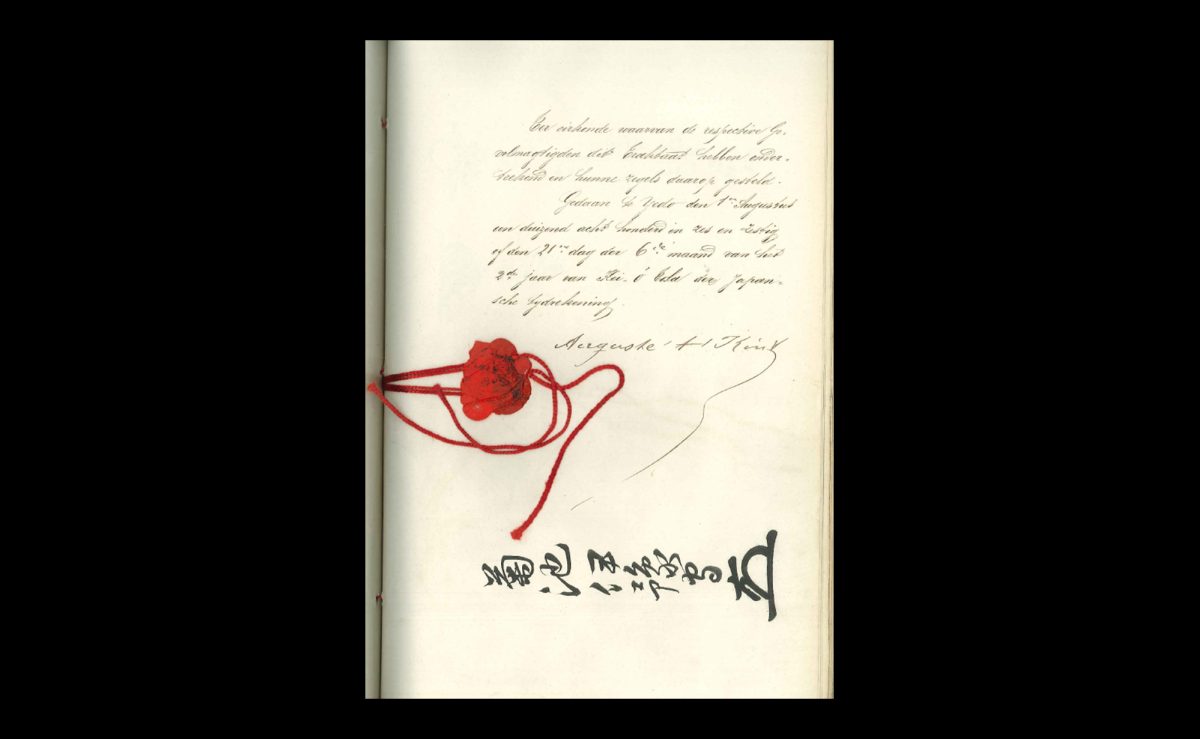 Ter oirkonde waarvan de respective Ge-
volmagtigden dit Tractaat hebben onder-
teekend en hunne zegels daarop gesteld.
Gedaan te Yedo den 1en Augustus
een duizend acht honderd en zes en zestig
of den 21en dag der 6de maand van het
2de jaar van Kei-ō der Japan-
sche tydrekening.
Auguste t'Kint
菊池伊豫守